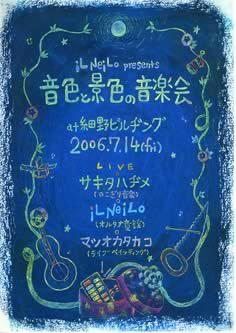 iLNeiLo presents
音色と景色の音楽会
at 細野ビルヂング
2006.7.14(fri)
LIVE
サキタハヂメ
(のこぎり音楽)
iLNeiLo
(オルタナ音謡)
マツオカタカコ
(ライブペインティング)